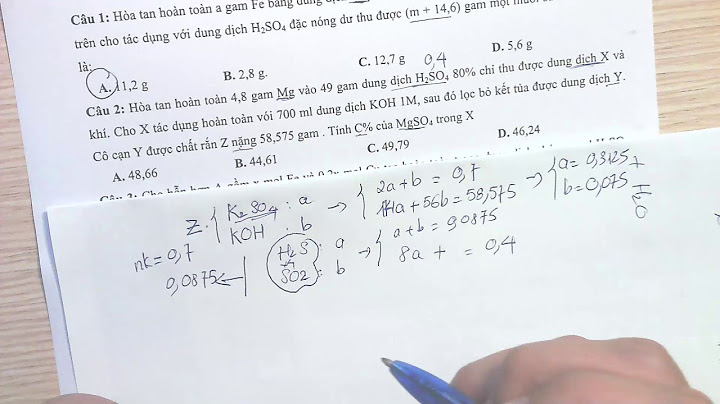 Câu 1: Hòa tan hoàn toàn a gam Fe bằng dung
trên cho tác dụng với dung dịch H₂SO₄ đặc nóng dư thu được (m + 14,6) gam một muối
là:
A. 11,2 g B. 2,8 g. C. 12,7 g D. 5,6 g
0,4
Câu 2: Hòa tan hoàn toàn 4,8 gam Mg vào 49 gam dung dịch H₂SO₄ 80% chỉ thu được dung dịch X và
khí. Cho X tác dụng hoàn toàn với 700 ml dung dịch KOH 1M, sau đó lọc bỏ kết tủa được dung dịch Y.
Cô cạn Y được chất rắn Z nặng 58,575 gam . Tính C% của MgSO₄ trong X
A. 48,66 B. 44,61 C. 49,79 D. 46,24
Z. { K₂SO₄ : a → { 2a + b = 0,7 → { a = 0,3125
KOH : b 174a + 56b = 58,575 b = 0,075
+ H₂O
nk = 0,7 H₂S : a → { a + b = 0,0875
0,0875 ← SO2 : b 8a + = 0,4